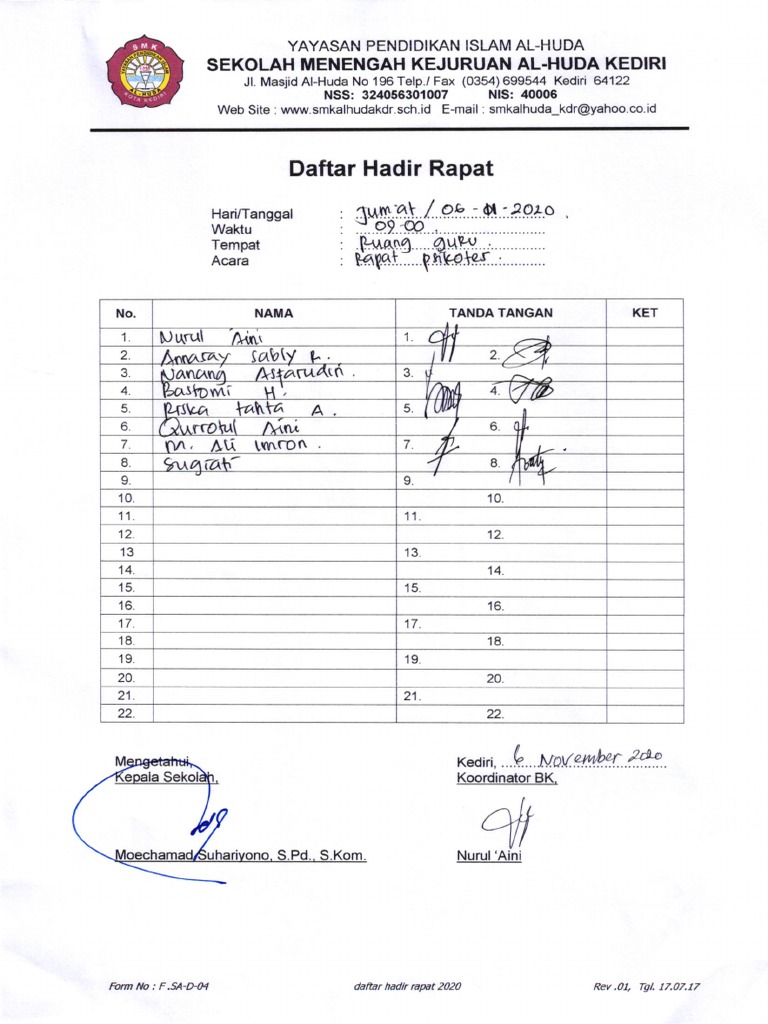 SMK
YAYASAN PENDIDIKAN ISLAM
AL-HUDA
KOTA KEDIRI
YAYASAN PENDIDIKAN ISLAM AL-HUDA
SEKOLAH MENENGAH KEJURUAN AL-HUDA KEDIRI
Jl. Masjid Al-Huda No 196 Telp./ Fax (0354) 699544 Kediri 64122
NSS: 324056301007 NIS: 40006
Web Site : www.smkalhudakdr.sch.id E-mail : smkalhuda_kdr@yahoo.co.id
Daftar Hadir Rapat
Hari/Tanggal : Jum'at / 06 - 11 - 2020 .
Waktu : 09.00 .
Tempat : Ruang guru .
Acara : Rapat psikotes .
No. NAMA TANDA TANGAN KET
1. Nurul 'Aini 1.
2. Annaray Sably R. 2.
3. Nanang Asfarudin. 3.
4. Bastomi H. 4.
5. Riska tahta A. 5.
6. Qurrotul Aini 6.
7. M. Ali Imron. 7.
8. Sugiati 8.
9. 9.
10. 10.
11. 11.
12. 12.
13 13.
14. 14.
15. 15.
16. 16.
17. 17.
18. 18.
19. 19.
20. 20.
21. 21.
22. 22.
Mengetahui, Kediri, 6 November 2020
Kepala Sekolah, Koordinator BK,
Moechamad Suhariyono, S.Pd., S.Kom. Nurul 'Aini
Form No : F .SA-D-04 daftar hadir rapat 2020 Rev .01, Tgl. 17.07.17